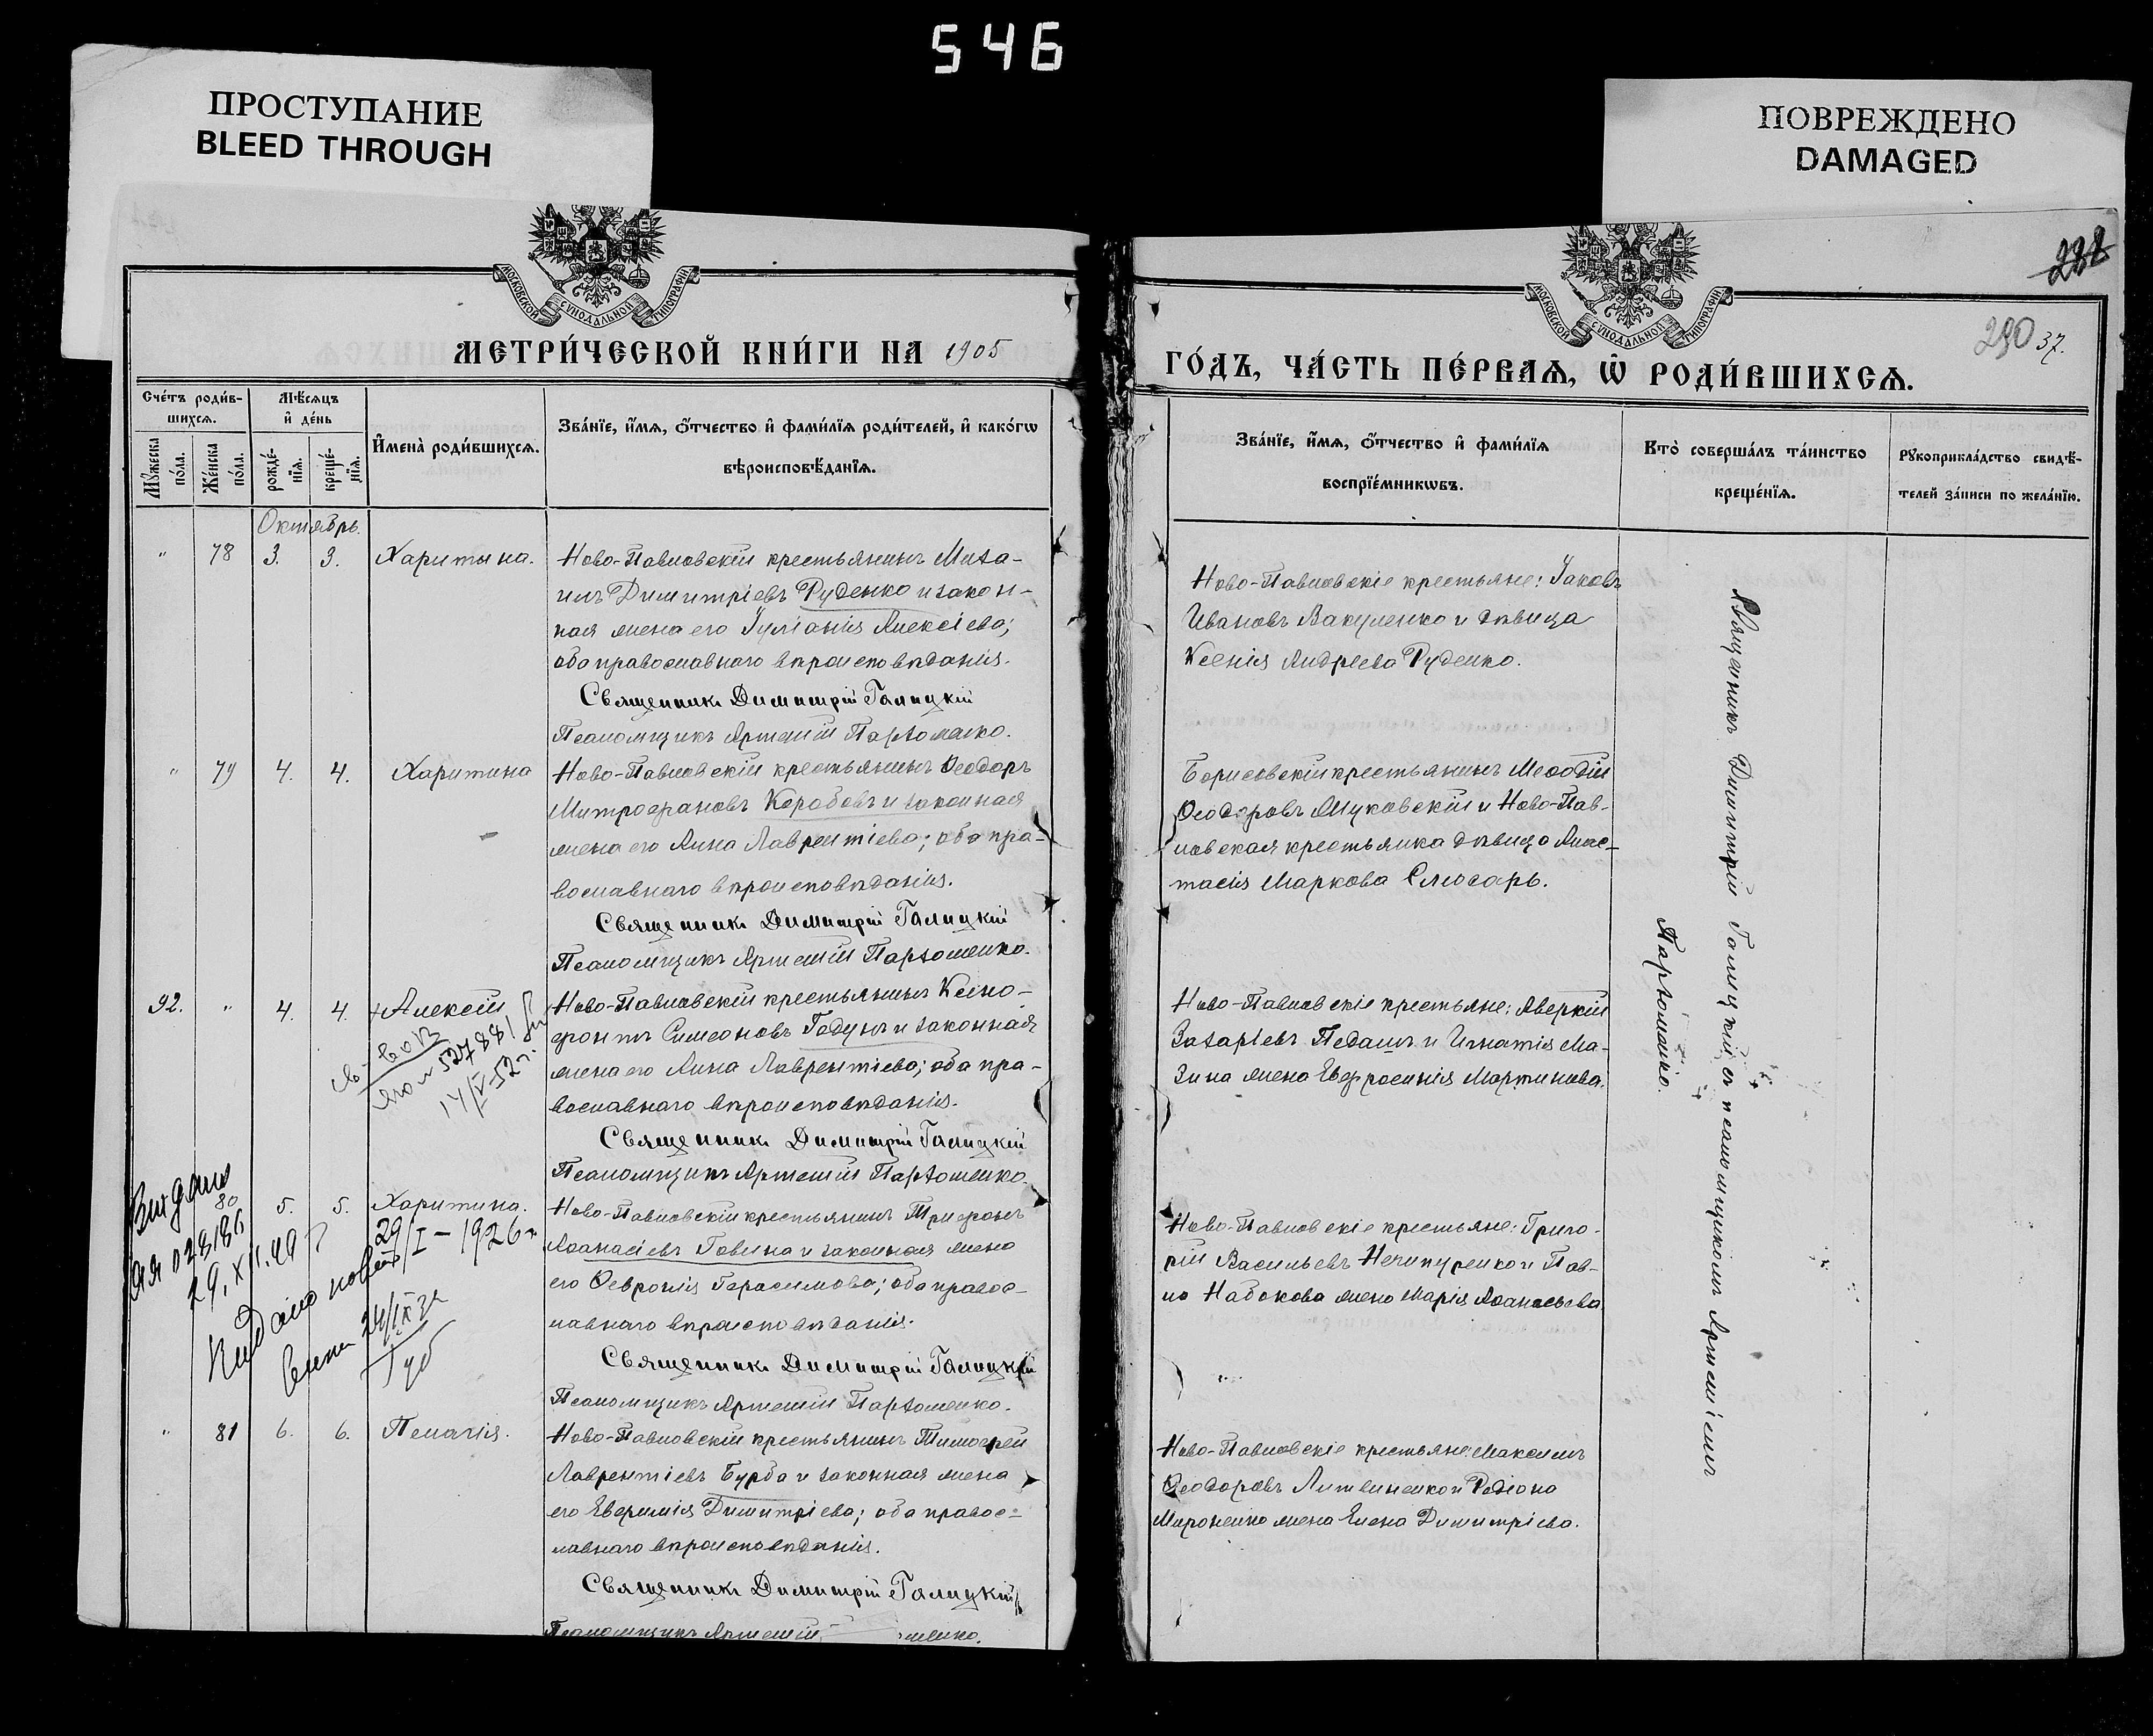 546
ПРОСТУПАНИЕ
BLEED THROUGH
ПОВРЕЖДЕНО
DAMAGED
МОСКОВСКОЙ СѴНОДАЛЬНОЙ ТИПОГРАФІИ
МЕТРИ́ЧЕСКОЙ КНИ́ГИ НА 1905
Сче́тъ роди́в-
шихсѧ.
Мѣ́сѧцъ
и҆ де́нь
Мꙋ́жеска
по́ла.
Же́нска
по́ла.
рожде́-
нїѧ.
креще́-
нїѧ.
И҆мена̀ роди́вшихсѧ.
Зва́нїе, и҆́мѧ, ѻ҆́тчество и҆ фами́лїѧ роди́телей, и҆ како́гѡ
вѣроисповѣ́данїѧ.
Октябрь.
" 78 3. 3. Харитина.
Ново-Павловскій крестьянинъ Миха-
илъ Димитріевъ Руденко и закон-
ная жена его Іуліанія Алексіева;
оба православнаго вѣроисповѣданія.
Священникъ Димитрій Галицкій
Псаломщикъ Артемій Пархоменко.
" 79 4. 4. Харитина
Ново-Павловскій крестьянинъ Ѳеодоръ
Митрофановъ Коробовъ и законная
жена его Анна Лаврентіева; оба пра-
вославнаго вѣроисповѣданія.
Священникъ Димитрій Галицкій
Псаломщикъ Артемій Пархоменко.
92. " 4. 4. Алексій
527881
14/V-52г.
Ново-Павловскій крестьянинъ Ксено-
фонтъ Симеоновъ Годунъ и законная
жена его Анна Лаврентіева; оба пра-
вославнаго вѣроисповѣданія.
Священникъ Димитрій Галицкій
Псаломщикъ Артемій Пархоменко.
80 5. 5. Харитина.
29/I-1926г
Видано
ЯЯ 028186
Ново-Павловскій крестьянинъ Трифонъ
Аѳанасіевъ Говина и законная жена
его Ѳевронія Герасимова; оба правос-
лавнаго вѣроисповѣданія.
Священникъ Димитрій Галицкій
Псаломщикъ Артемій Пархоменко.
" 81 6. 6. Пелагія.
Ново-Павловскій крестьянинъ Тимофей
Лаврентіевъ Бурба и законная жена
его Евфимія Димитріева; оба правос-
лавнаго вѣроисповѣданія.
Священникъ Димитрій Галицкій
Псаломщикъ Артемій менко.
282
290 37.
МОСКОВСКОЙ СѴНОДАЛЬНОЙ ТИПОГРАФІИ
ГО́ДЪ, ЧА́СТЬ ПЕ́РВАѦ, Ѽ РОДИ́ВШИХСѦ.
Зва́нїе, и҆́мѧ, ѻ҆́тчество и҆ фами́лїѧ
воспрїе́мникѡвъ.
Кто̀ соверша́лъ та́инство
креще́нїѧ.
Рꙋкоприкла́дство свидѣ́-
телей за́писи по жела́нїю.
Ново-Павловскіе крестьяне: Іаковъ
Ивановъ Вакуленко и дѣвица
Ксенія Андреева Руденко.
Борисовскій крестьянинъ Меѳодій
Ѳеодоровъ Жуковскій и Ново-Пав-
ловская крестьянка дѣвица Анас-
тасія Маркова Слюсарь.
Ново-Павловскіе крестьяне: Аверкій
Захаріевъ Педашъ и Игнатія Ма-
зина жена Евфросинія Мартинова.
Ново-Павловскіе крестьяне: Григо-
рій Васильевъ Нечипуренко и Пав-
ла Набокова жена Марія Аѳанасьева.
Ново-Павловскіе крестьяне: Максимъ
Ѳеодоровъ Литвиненко и Родіона
Мироненко жена Елена Димитріева.
Священникъ Димитрій Галицкій съ псаломщикомъ Артеміемъ
Пархоменко.